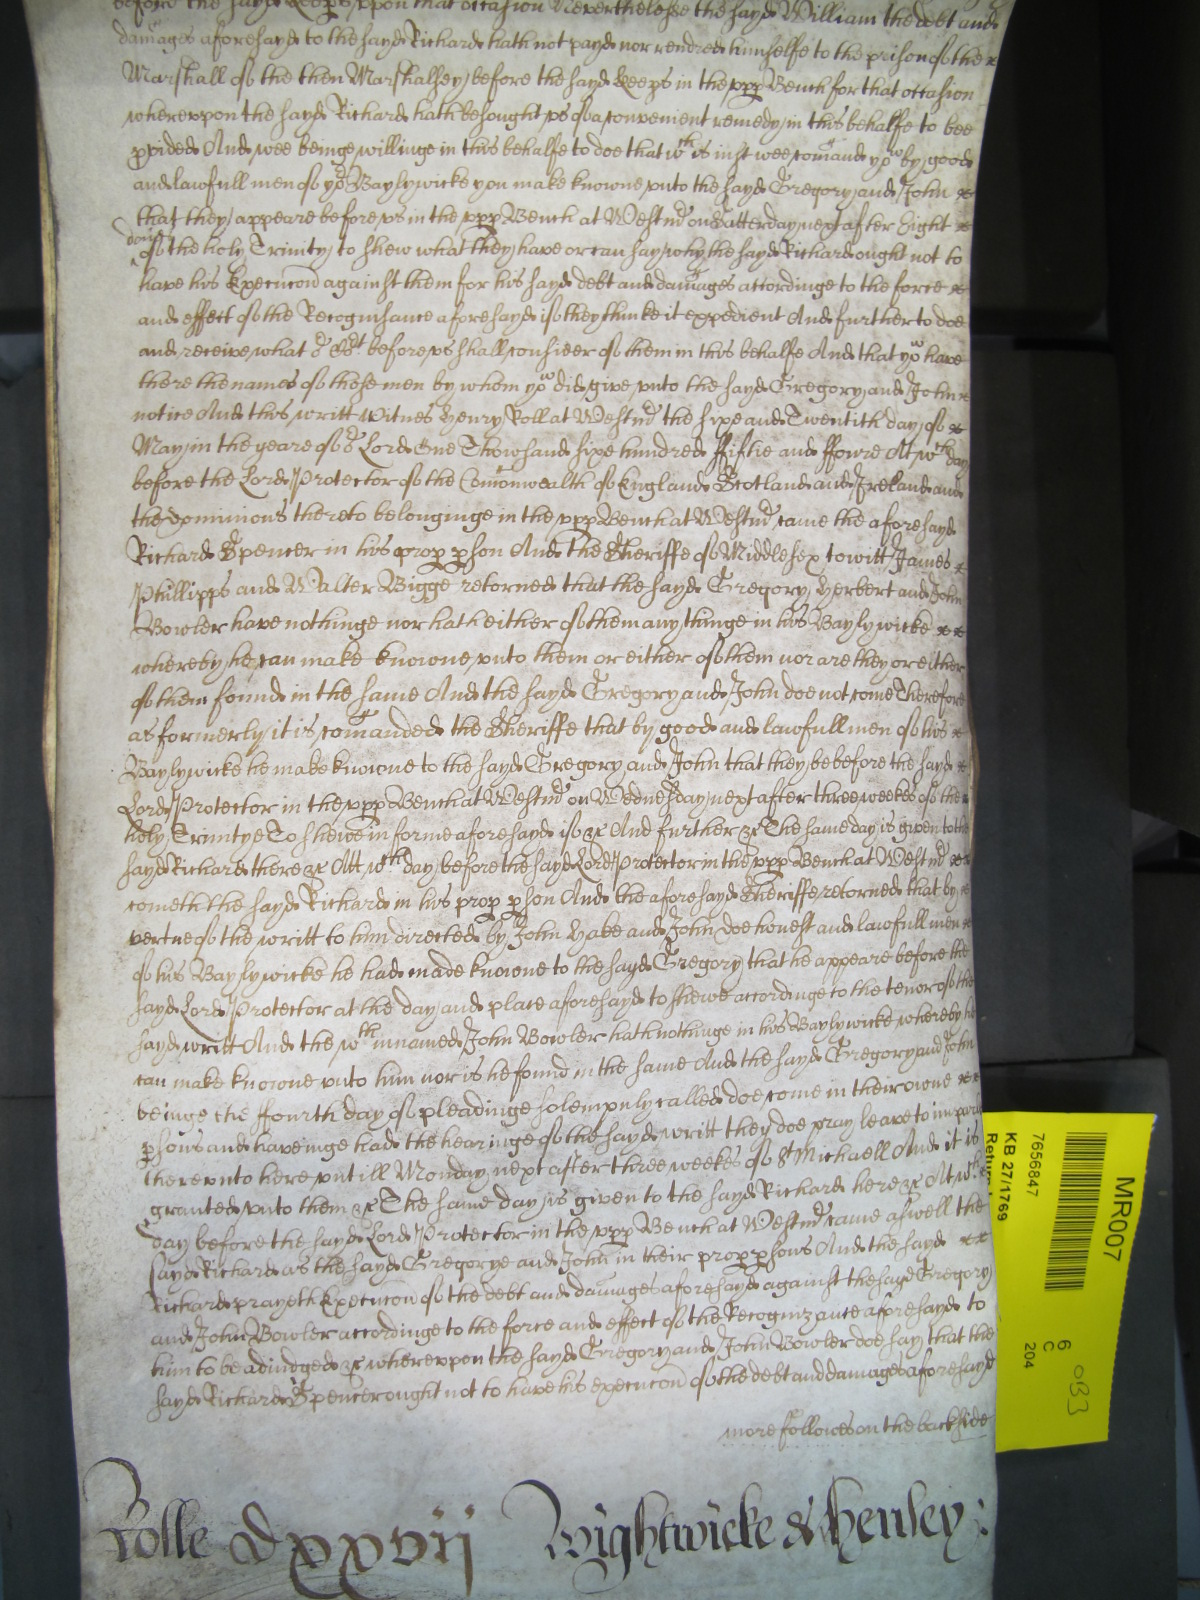 before the sayd Keeps uppon that occasion Neverthelesse the sayd William the debt and
damages aforesayd to the sayd Richard hath not payd nor rendred himselfe to the prison of the
Marshall of the then Marshalsey before the sayd Keeps in the upp Bench for that occasion
whereuppon the sayd Richard hath besought us of a convenient remedy in this behalfe to bee
pvided And wee beinge willinge in this behalfe to doe that wch is just wee comand you by good
and lawfull men of yor Baylywicke you make knowne unto the sayd Gregory and John
that they appeare before us in the upp Bench at Westmr on Satterday next after Eight
dayes of the holy Trinity to shew what they have or can say why the sayd Richard ought not to
have his Execucon against them for his sayd debt and damages accordinge to the force
and effect of the Recognisance aforesayd if they thinke it expedient And further to doe
and receive what or Cort before us shall consider of them in this behalfe And that you have
there the names of those men by whom you did give unto the sayd Gregory and John
notice And this writt Witnes Henry Roll at Westmr the sixe and Twentith day of
May in the yeare of or Lord One Thowsand sixe hundred fiftie and ffowre At wch day
before the Lord Protector of the Comonwealth of England Scotland and Ireland and
the dominions thereto belonginge in the upp Bench at Westmr came the aforesayd
Richard Spencer in his prop pson And the Sheriffe of Middlesex to witt James
Phillipps and Walter Bigge retorned that the sayd Gregory Herbert and John
Bowler have nothinge nor hath either of them any thinge in his Baylywicke
whereby he can make knowne unto them or either of them nor are they or either
of them found in the same And the sayd Gregory and John doe not come Therefore
as formerly it is comanded the Sheriffe that by good and lawfull men of his
Baylywicke he make knowne to the sayd Gregory and John that they be before the sayd
Lord Protector in the upp Bench at Westmr on Wednesday next after three weekes of the
holy Trinitye To shewe in forme aforesayd if &c And further &c The same day is given to the
sayd Richard there &c Att wch day before the sayd Lord Protector in the upp Bench at Westmr
cometh the sayd Richard in his prop pson And the aforesayd Sheriffe retorned that by
vertue of the writt to him directed by John Hake and John Doe honest and lawfull men
of his Baylywicke he had made knowne to the sayd Gregory that he appeare before the
sayd Lord Protector at the day and place aforesayd to shewe accordinge to the tenor of the
sayd writt And the wth innamed John Bowler hath nothinge in his Baylywicke whereby he
can make knowne unto him nor is he found in the same And the sayd Gregory and John
beinge the ffourth day of pleadinge solempnly called doe come in their owne
psons and haveinge had the hearinge of the sayd writt they doe pray leave to imparle
thereunto here untill Monday next after three weekes of St Michaell And it is
granted unto them &c The same day is given to the sayd Richard here &c At wch
day before the sayd Lord Protector in the upp Bench at Westmr came aswell the
sayd Richard as the sayd Gregorye and John in their prop psons And the sayd
Richard prayeth Execucon of the debt and damages aforesayd against the sayd Gregory
and John Bowler accordinge to the force and effect of the Recognizance aforesayd to
him to be adiudged &c whereuppon the sayd Gregory and John Bowler doe say that the
sayd Richard Spencer ought not to have his execucon of the debt and damages aforesayd
more followes on the backside
Rolle Dxxvij Wightwicke & Henley:
MR007
7656847
KB 27/1769
6
C
204